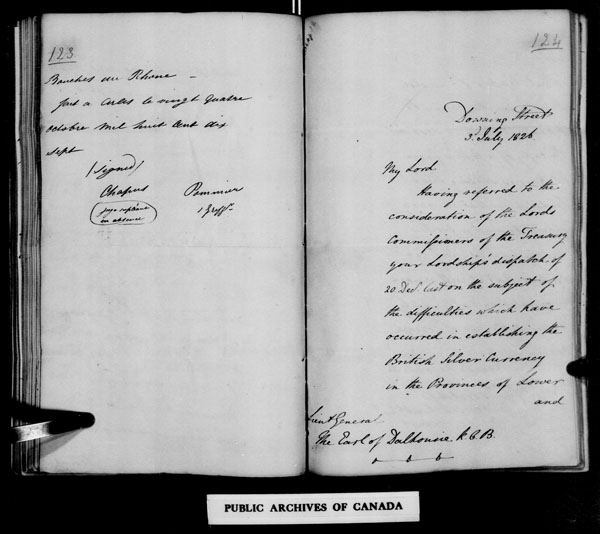 123
Bouches du Rhone –
fait a Arles le vingt quatre
octobre mil huit cent dix
sept
(signed)
Chapus Pommier
juge suppléant
en absence
124
Downing Street
3d July 1826
My Lord
Having referred to the
consideration of the Lords
Commissioners of the Treasury
your Lordship's dispatch of
20 Decr last on the subject of
the difficulties which have
occurred in establishing the
British Silver Currency
in the Provinces of Lower
and
Lieut General
The Earl of Dalhousie K.C.B.
PUBLIC ARCHIVES OF CANADA